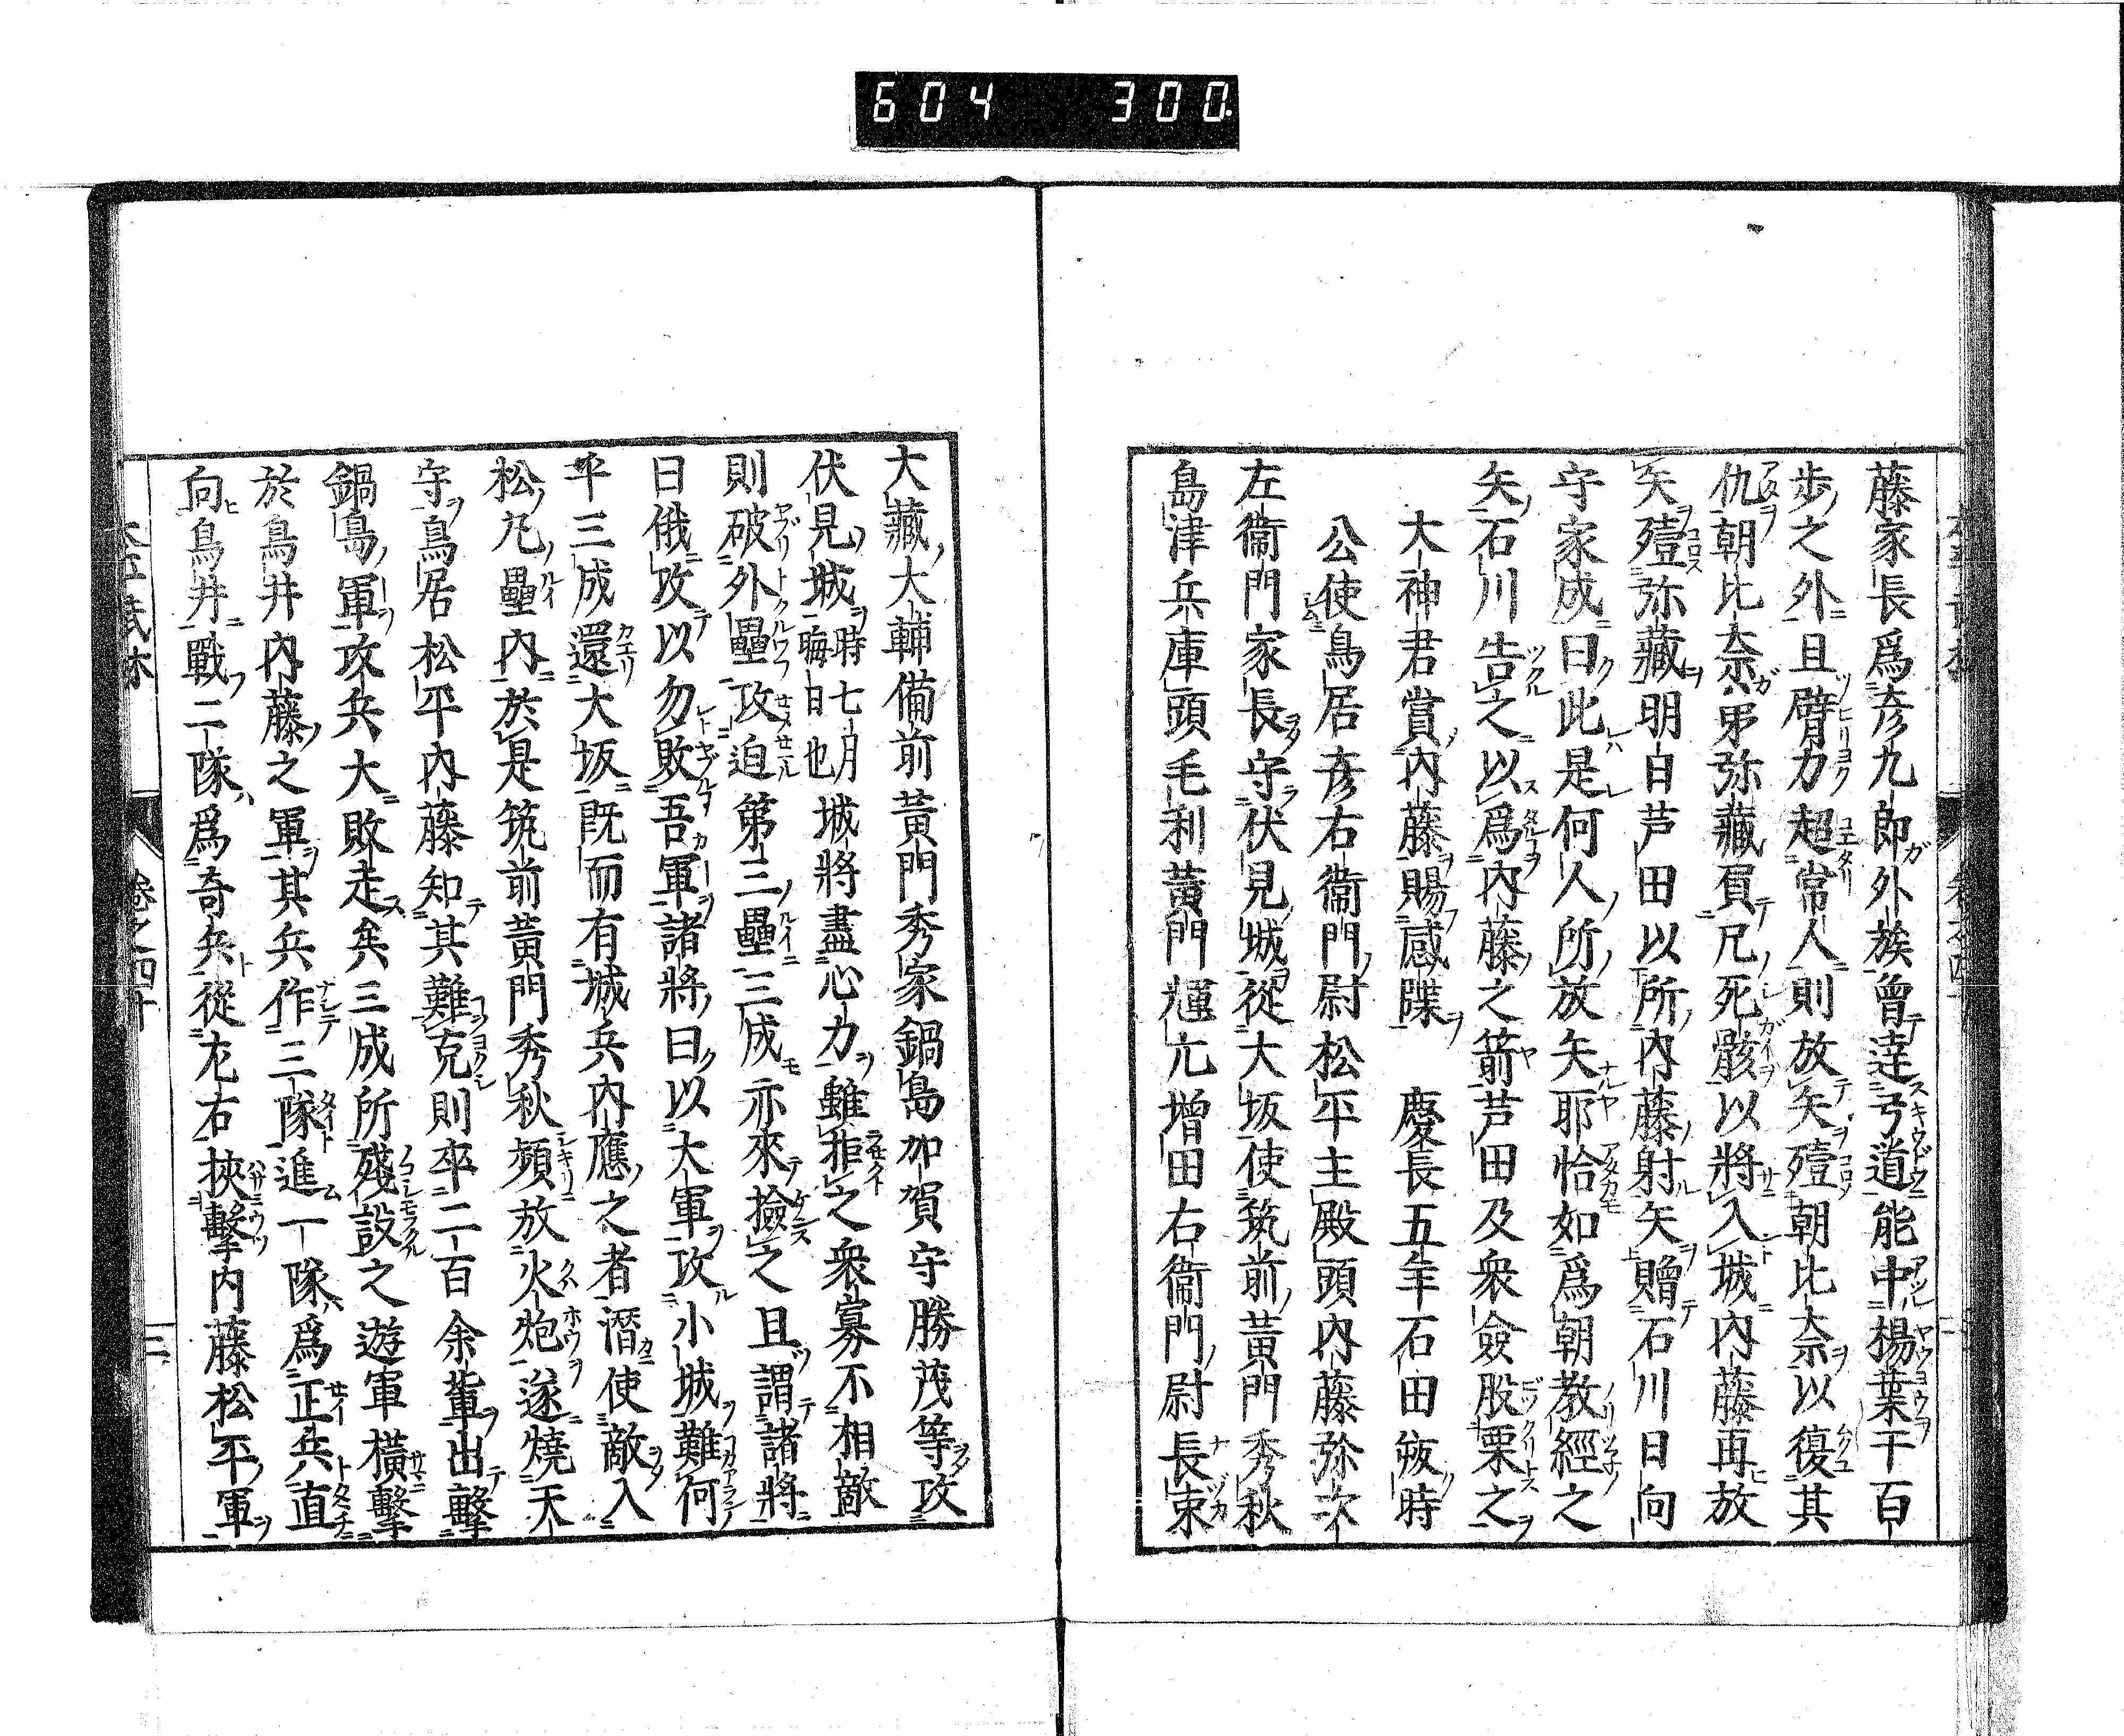 604 300.
藤家長爲彦九郎外族曾達弓道能中楊葉干百
歩之外且臂力超常人則放矢殪朝比奈以復其
仇朝比奈弟弥藏負兄死骸以將入城内藤再放
矢殪弥藏明白芦田以所内藤射矢贈石川日向
守家成曰此是何人所放矢耶恰如爲朝教經之
矢石川告之以爲内藤之箭芦田及衆僉股栗之
大神君賞内藤賜感牒 慶長五年石田叛時
公使鳥居彦右衞門尉松平主殿頭内藤弥次
左衞門家長守伏見城從大坂使筑前黄門秀秋
島津兵庫頭毛利黄門輝元増田右衞門尉長束
大藏大輔備前黄門秀家鍋島加賀守勝茂等攻
伏見城時七月晦日也城將盡心力雖拒之衆寡不相敵
則破外壘攻迫第三壘三成亦來撿之且謂諸將
曰俄攻以勿敗吾軍諸將曰以大軍攻小城難何
平三成還大坂既而有城兵内應之者潛使敵入
松丸壘内於是筑前黄門秀秋頻放火炮遂燒天
守鳥居松平内藤知其難克則卒二百余軰出擊
鍋島軍攻兵大敗走矣三成所殘設之遊軍橫擊
於鳥井内藤之軍其兵作三隊進一隊爲正兵直
向鳥井戰二隊爲奇兵從左右挾擊内藤松平軍
卷之四十